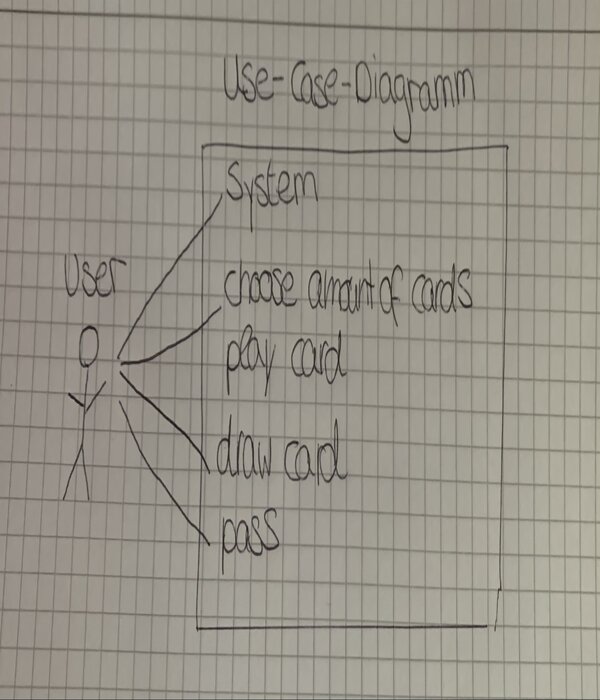 Use-Case-Diagramm
System
User
choose amount of cards
play card
draw card
pass